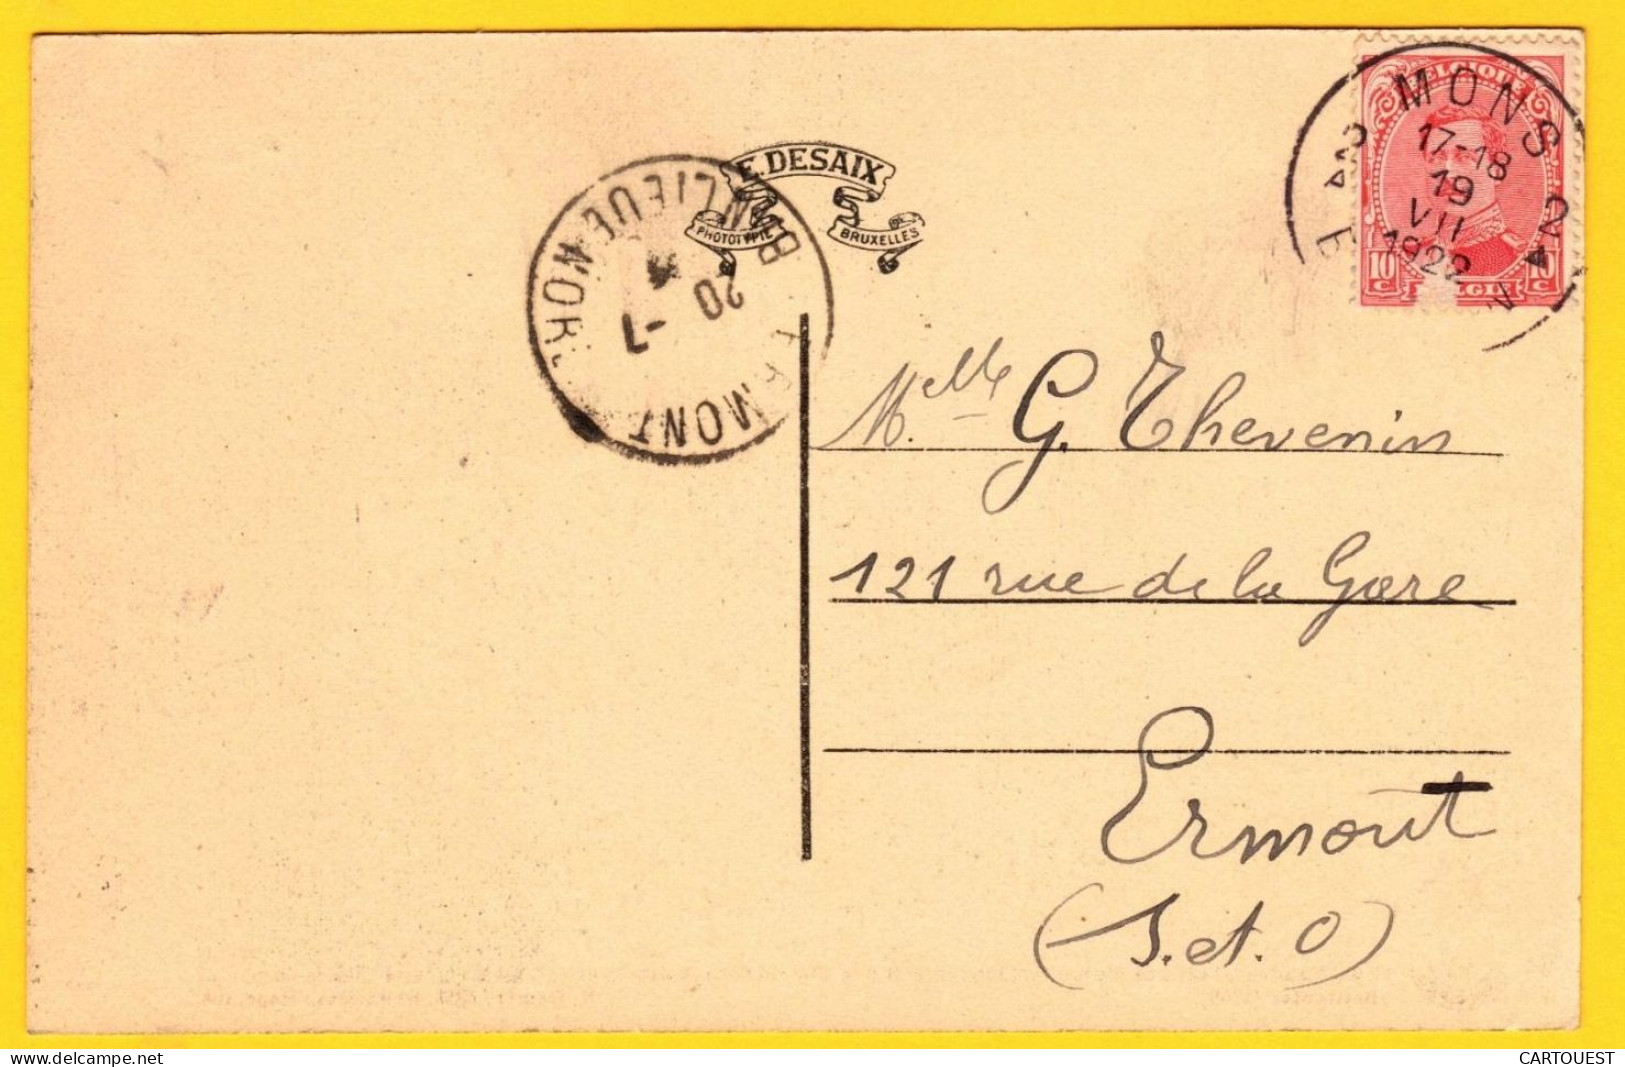 E. DESAIX
PHOTOTYPIE BRUXELLES
BELGIQUE
10 C 10 C
BELGIE
MONS
2A 2A
17-18
19
VII
1922
BANLIEUE NORD
20 -7
ERMONT
Melle G. Thevenin
121 rue de la Gare
Ermont
(S. et. O)
delcampe.net
CARTOUEST